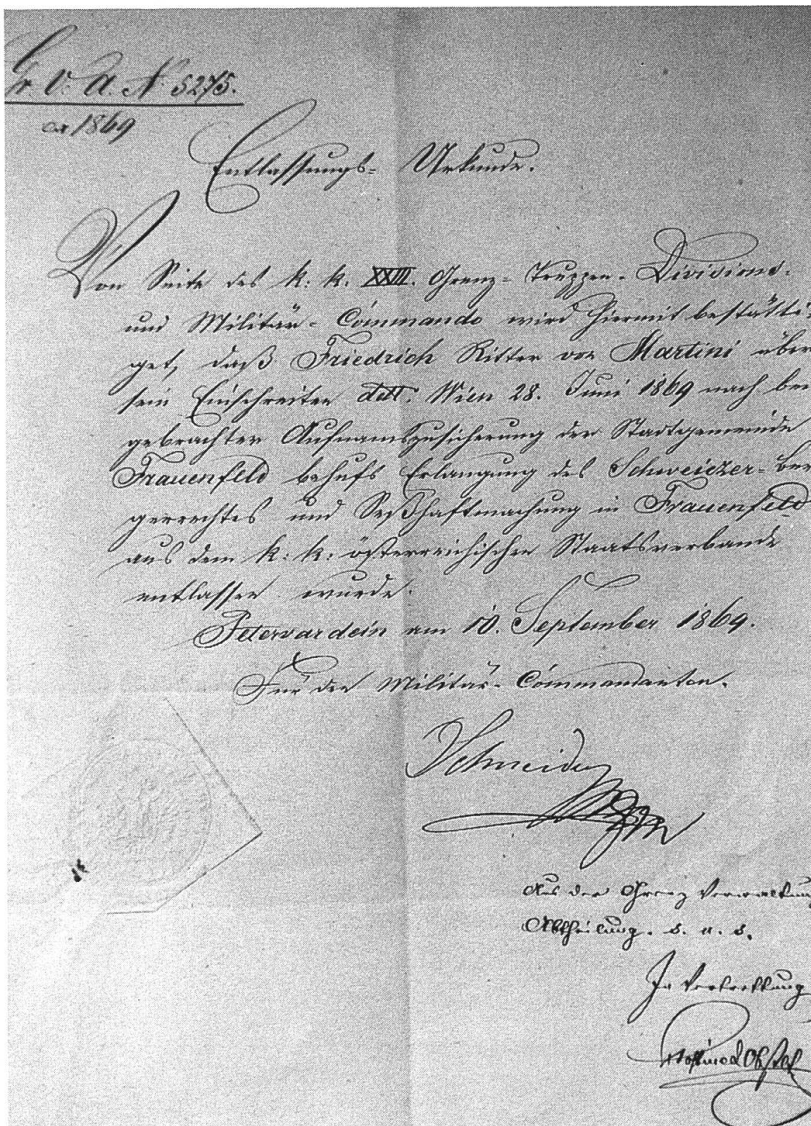 Gr. V. A. N 5275.
ex 1869
Entlassungs- Urkunde.
Von Seite des k. k. XXIII. Grenz- Truppen- Divisions-
und Militär- Commando wird hiermit bestätti-
get, daß Friedrich Ritter von Martini über
sein Einschreiten dtt: Wien 28. Juni 1869 nach bei
gebrachter Aufnamszusicherung der Stadtgemeinde
Frauenfeld behufs Erlangung des Schweizer- bür
gerrechtes und Seßhaftmachung in Frauenfeld
aus dem k. k. österreichischen Staatsverbande
entlassen wurde.
Petervardein am 10. September 1869.
Für den Militär- Commandanten.
Schneider
Aus der Grenz Verwaltung
Abtheilung. d. a. d.
In Vertrettung